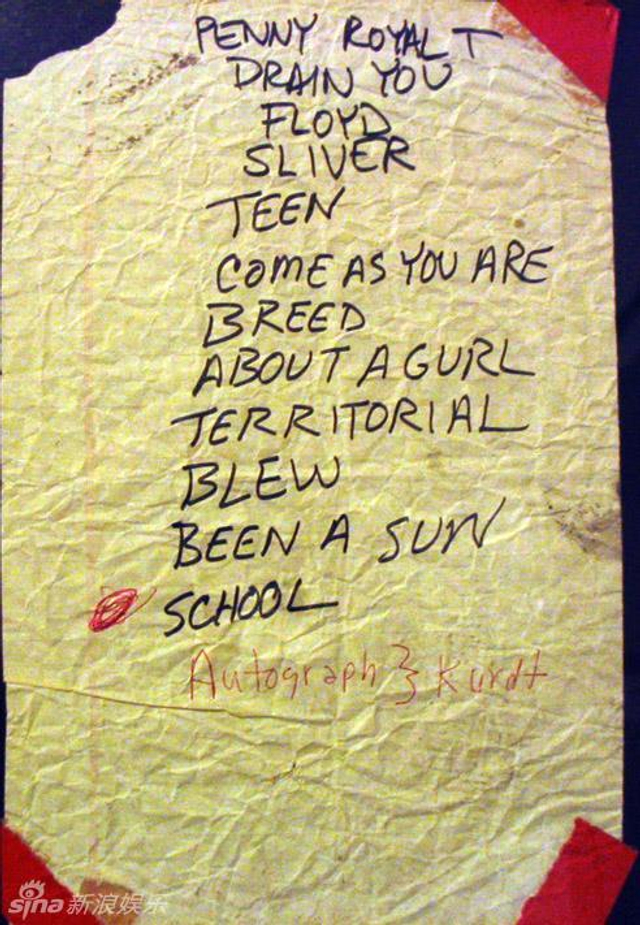 PENNY ROYAL T
DRAIN YOU
FLOYD
SLIVER
TEEN
COME AS YOU ARE
BREED
ABOUT A GURL
TERRITORIAL
BLEW
BEEN A SUN
SCHOOL
Autograph } Kurdt
sina新浪娱乐